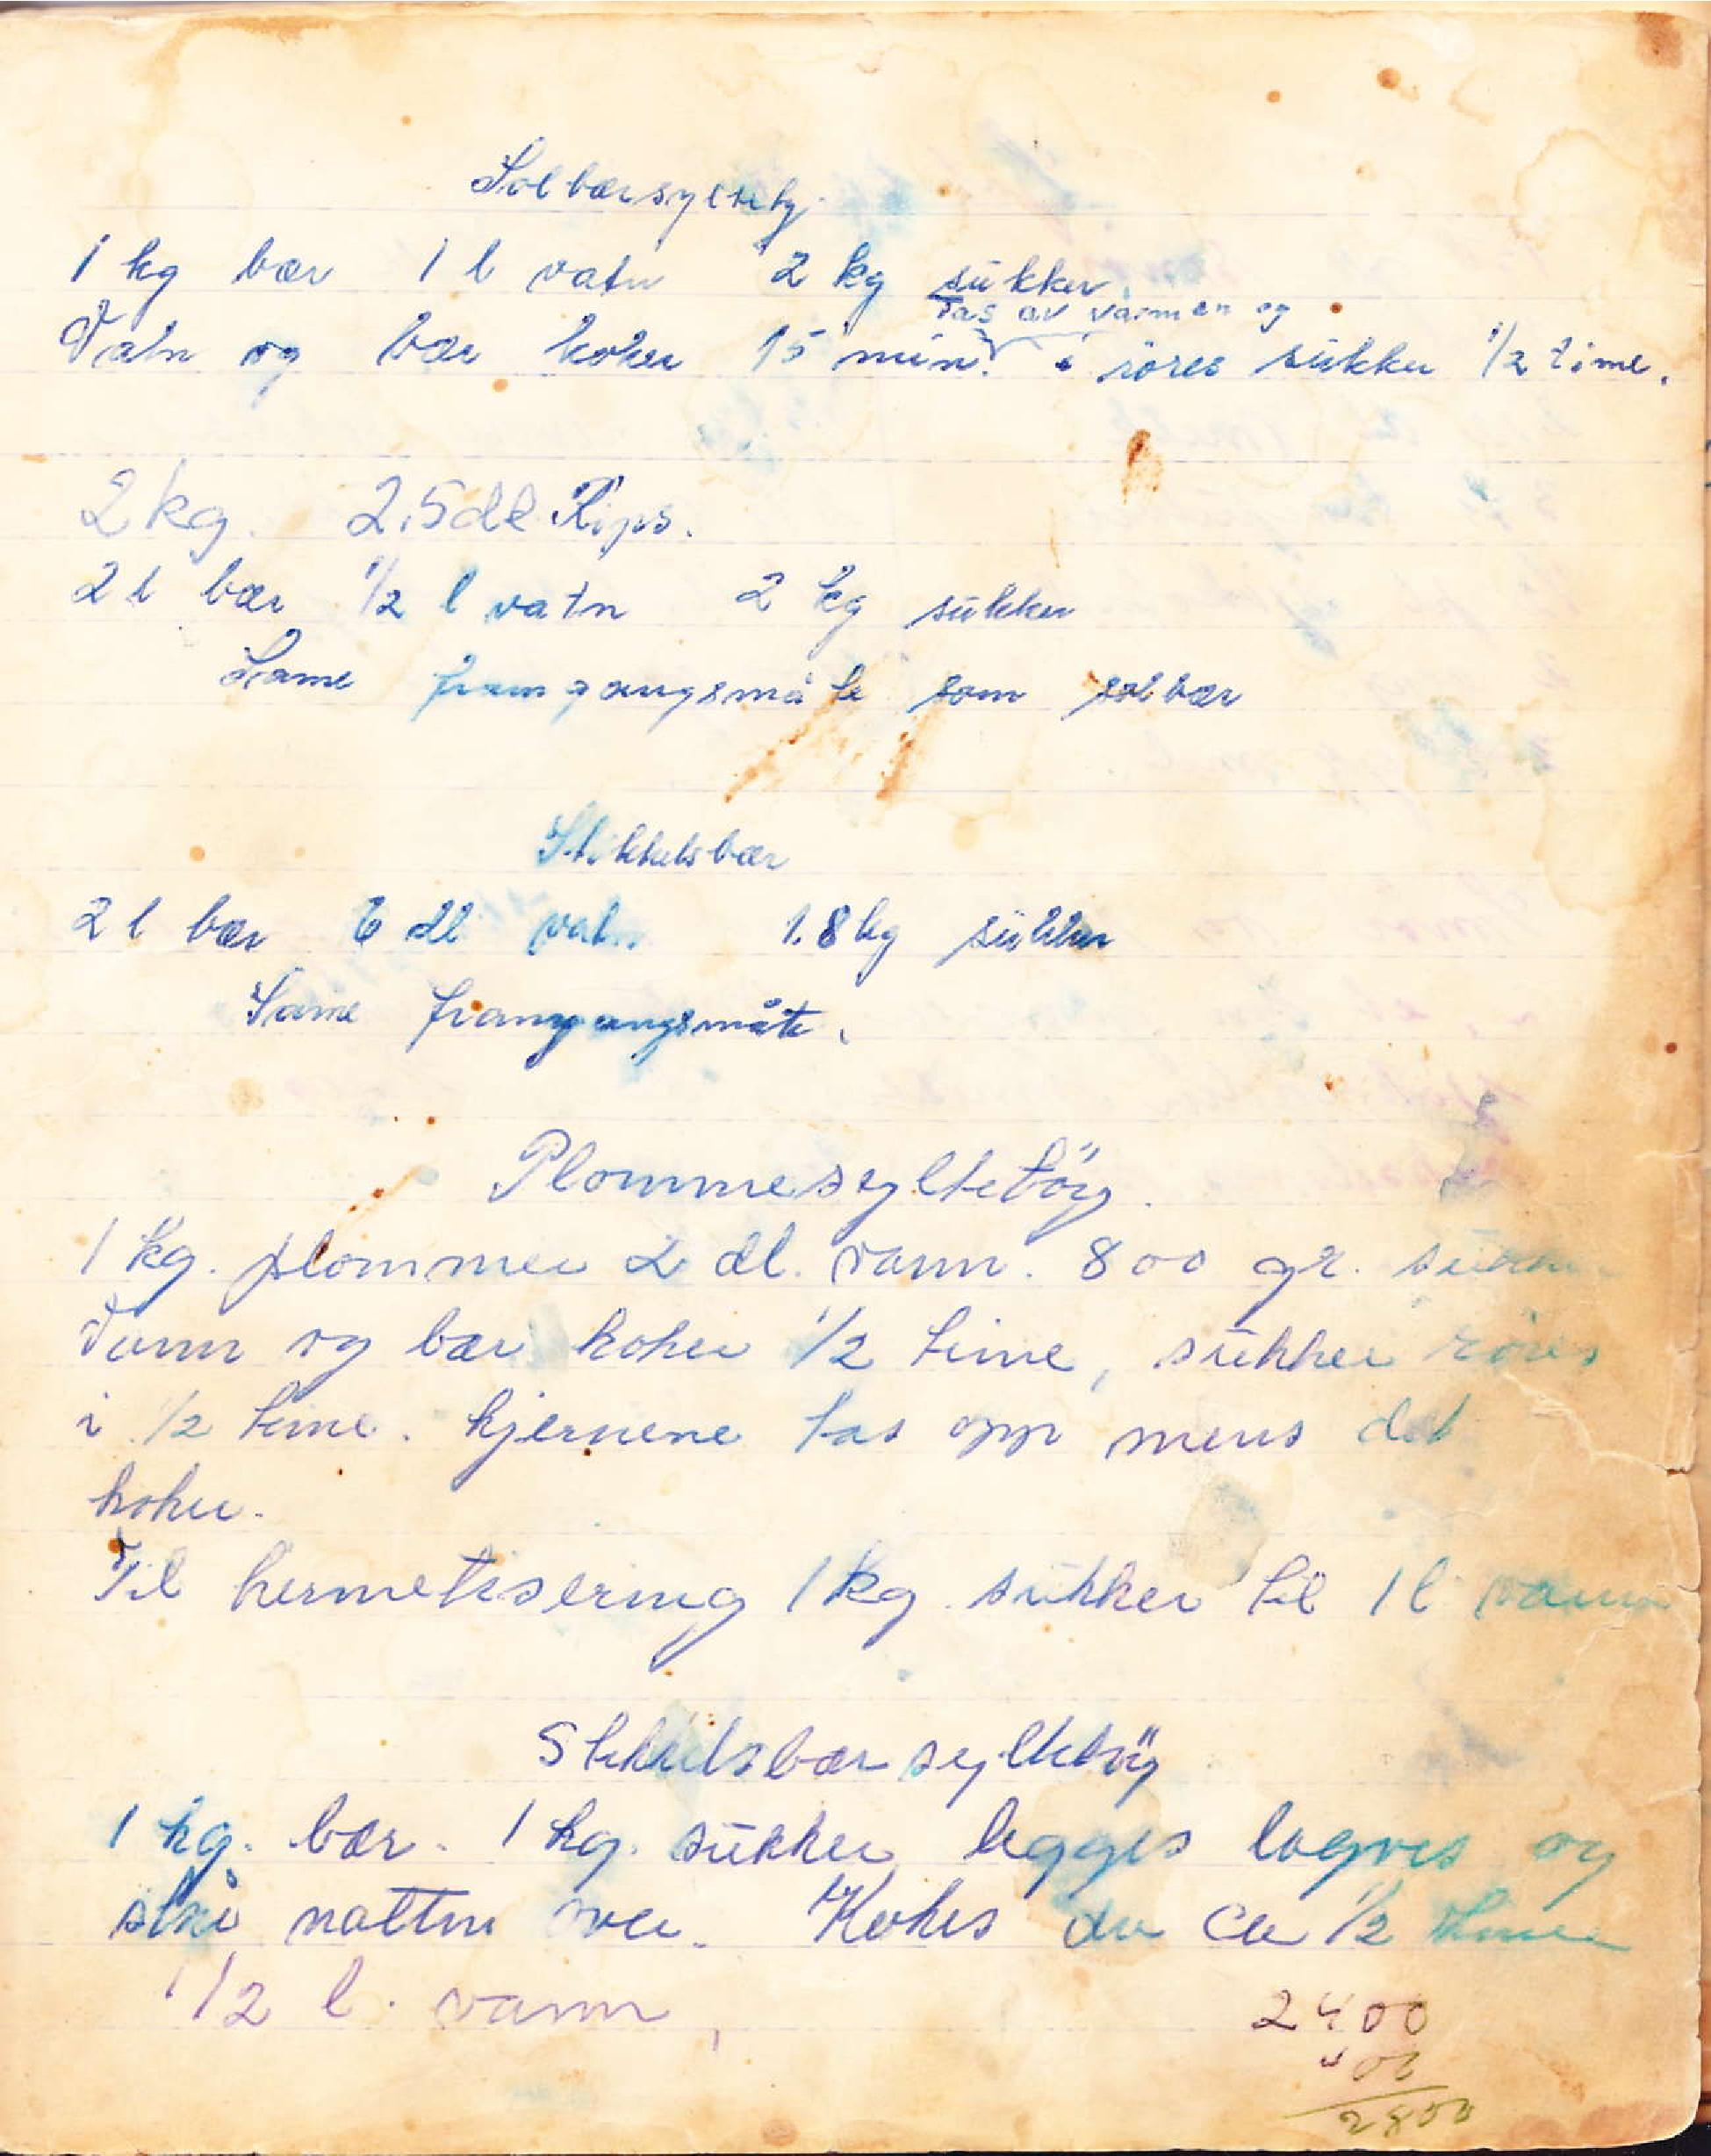 Solbærsyltety
1 kg bær 1 l vatn 2 kg sukker
Tas av varmen og
Vatn og bær koker 15 min. i røres sukker 1/2 time.
2 kg. 2,5 dl Rips.
2 l bær 1/2 l vatn 2 kg sukker
Same framgangsmåte som solbær
Stikkelsbær
2 l bær 6 dl vatn 1.8 kg sukker
Same framgangsmåte.
Plommesyltetöy.
1 kg. plommer 2 dl. vann. 800 gr. sukker
Vann og bær koker 1/2 time, sukker röres
i 1/2 time. kjernene tas opp mens det
koker.
Til hermetisering 1 kg sukker til 1 l vann
Stikkelsbærsyltetöy
1 kg. bær. 1 kg. sukker legges lagvis og
stå natten over. Kokes da ca 1/2 time
1/2 l. vann
2400
400
2800